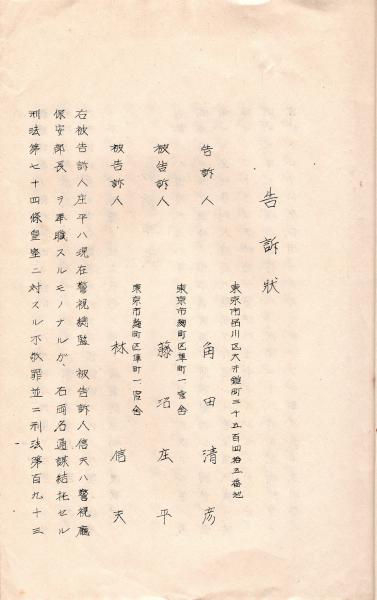 告訴状
東京市品川区大井鎧町三千五百四拾五番地
告訴人 角田清彦
東京市麹町区隼町一官舎
被告訴人 藤沼庄平
東京市麹町区隼町一官舎
被告訴人 林信夫
右被告訴人庄平ハ現在警視總監 被告訴人信夫ハ警視廳
保安部長ヲ奉職スルモノナルガ、右両名通謀結托セル
刑法第七十四條皇室ニ対スル不敬罪並ニ刑法第百九十三